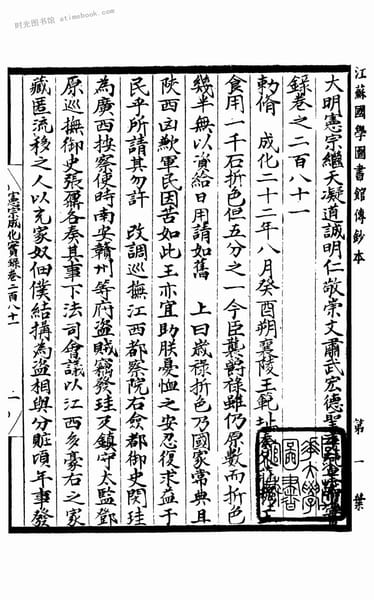 时光图书馆 atimebook.com
江蘇國學圖書館傳鈔本 第一葉
大明憲宗繼天凝道誠明仁敬崇文肅武宏德聖
錄卷之二百八十一
勑脩 成化二十二年八月癸酉朔襄陵王範址
食用一千石折色但五分之一今臣襲爵祿雖仍原數而折色
幾半無以資給日用請如舊 上曰歲祿折色乃國家常典且
陝西凶歉軍民困苦如此王亦宜助朕憂恤之安忍復求益于
民乎所請其勿許 改調巡撫江西都察院右僉都御史閔珪
為廣西按察使時南安贛州等府盜賊竊發珪及鎮守太監鄧
原巡撫御史張鼐各奏其事下法司會議以江西多豪右之家
藏匿流移之人以充家奴佃僕結搆為盜相與分贓頃年事發
憲宗成化實錄卷二百八十一 一